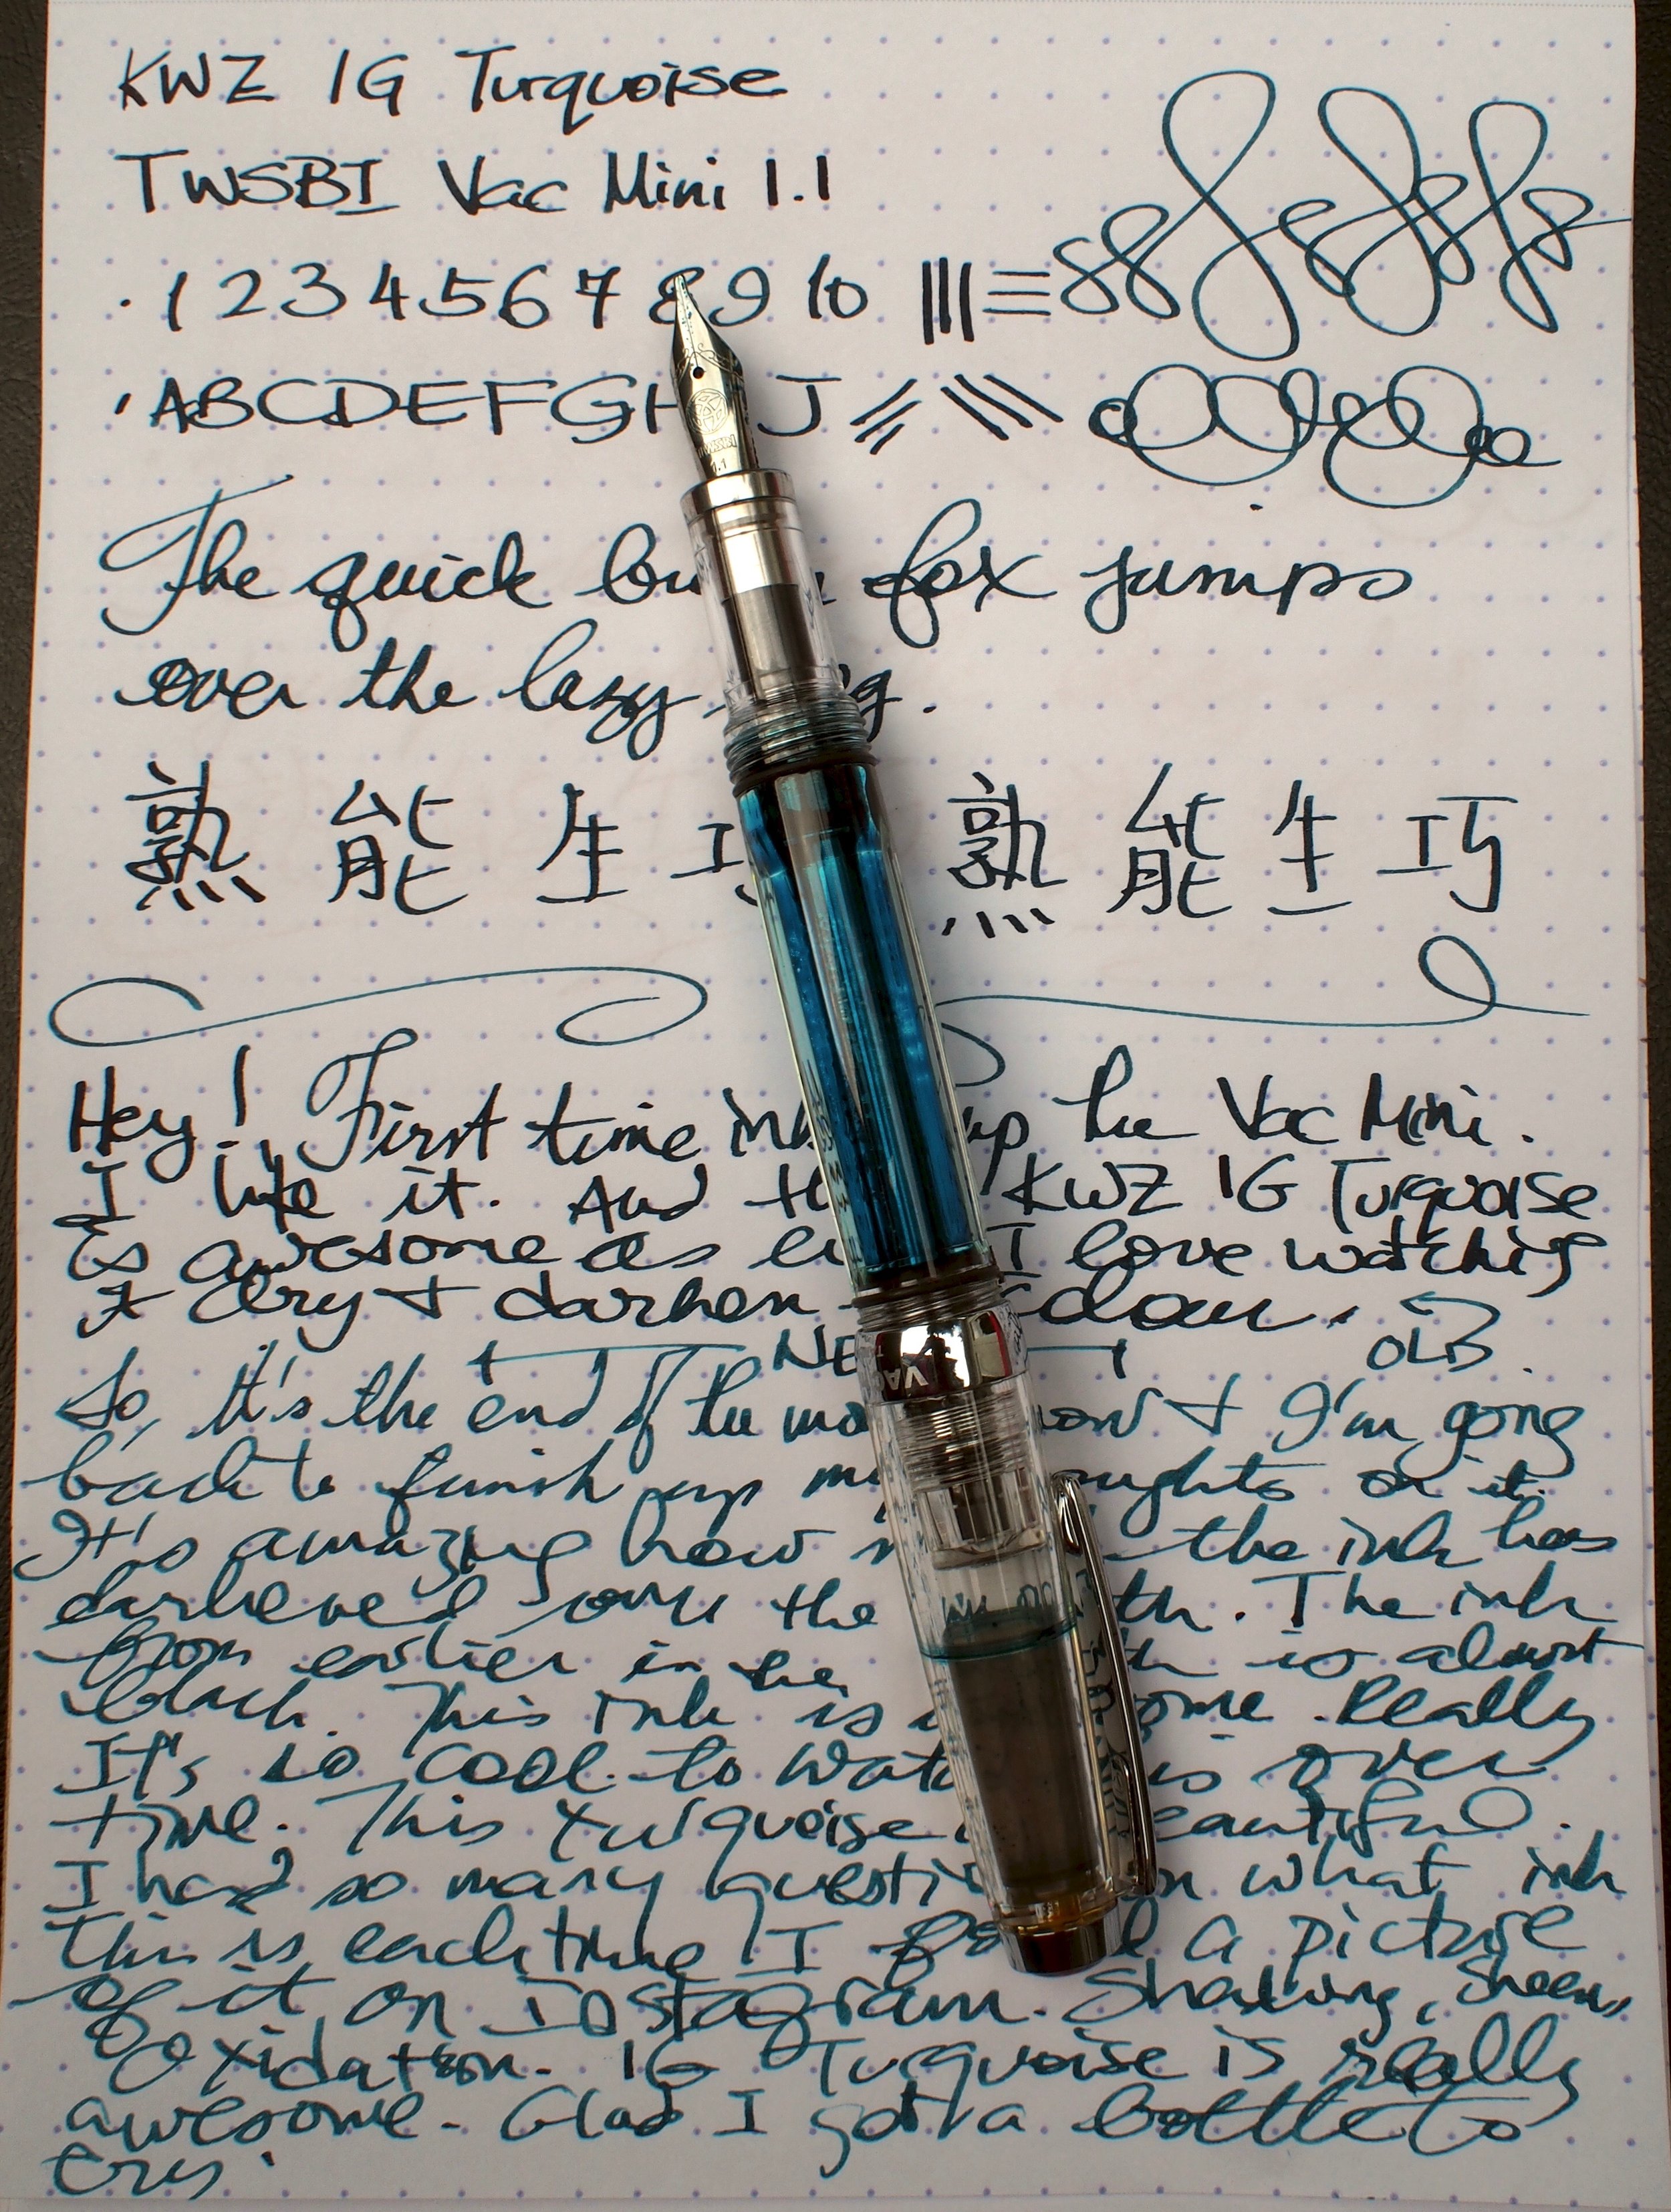 KWZ IG Turquoise
TWSBI Vac Mini 1.1
1 2 3 4 5 6 7 8 9 10
ABCDEFGH J
The quick fox jumps
over the lazy
熟能生巧 熟能生巧
Hey! First time up the Vac Mini.
I like it. And KWZ IG Turquoise
is awesome as I love watching
it dry + darken
OLD
So, It's the end of the + I'm going
back to finish up on it.
It's amazing how the ink has
darkened over the The ink
from earlier in the is almost
black. This ink is Really
It's so cool to over
time. This turquoise
I had so many what ink
this is each time I a picture
of it on Instagram. Shading, sheen,
Oxidation. IG Turquoise is really
awesome. Glad I got a bottle to
try.
TWSBI
1.1
VAC